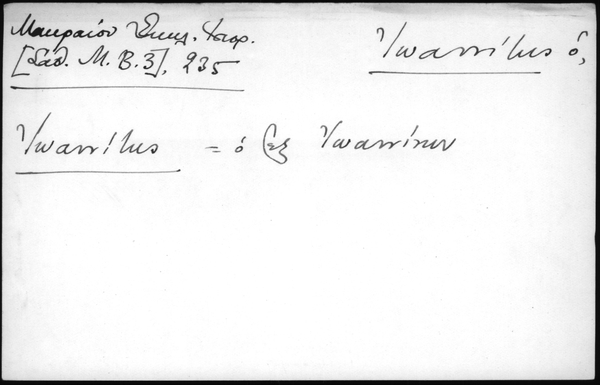 Μακραίου Ἐκκλ. Ἱστορ.
[Σάθ. Μ. Β. 3], 235
Ἰωαννίτης ὁ,
Ἰωαννίτης = ὁ ἐξ Ἰωαννίνων